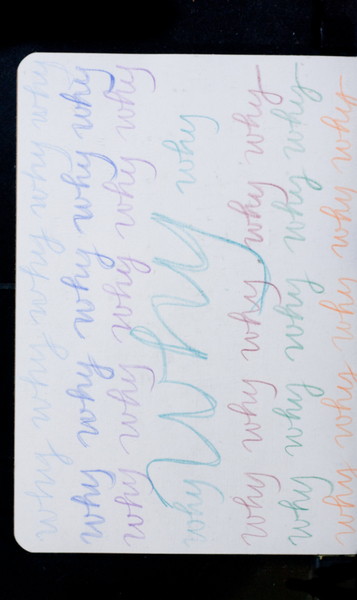 why why why why why
why why why why why
why why why why why
why why why
why why why why why
why why why why why
why why why why why